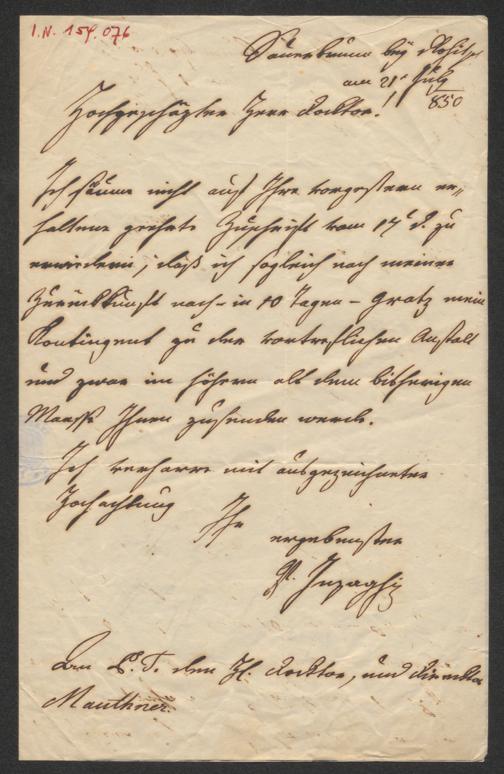 I.N. 154.076
Sauerbrunn bey Rohitsch
am 21t July
850
Hochgeschäzter Herr Docktor!
Ich säume nicht auf Ihre vorgestern er-
haltene geehrte Zuschrift vom 17t d. zu
erwiedern, daß ich sogleich nach meiner
Zurückkunft nach – in 10 Tagen – Gratz mein
Kontingent zu der vortreflichen Anstalt
und zwar im höhern als dem bisherigen
Maasse Ihnen zusenden werde.
Ich verharre mit ausgezeichneter
Hochachtung
Ihr
ergebenster
Inzaghi
An P. T. den H. Docktor, und Direcktor
Mauthner.